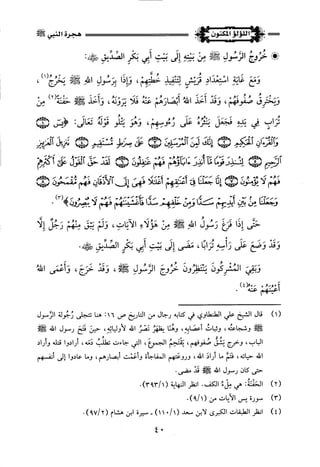 اللؤلؤ المكنون
هجرة النبي ﷺ
● خُرُوجُ الرَّسُولِ ﷺ مِنْ بَيْتِهِ إِلَى بَيْتِ أَبِي بَكْرٍ الصِّدِّيقِ ﷺ:
وَمَعَ غَايَةِ اسْتِعْدَادِ قُرَيْشٍ لِتَنْفِيذِ خُطَّتِهِمْ، وَإِذَا بِرَسُولِ اللهِ ﷺ يَخْرُجُ(١)،
وَيَخْتَرِقُ صُفُوفَهُمْ، وَقَدْ أَخَذَ اللهُ أَبْصَارَهُمْ عَنْهُ فَلَا يَرَوْنَهُ، وَأَخَذَ ﷺ حَفْنَةً(٢) مِنْ
تُرَابٍ فِي يَدِهِ فَجَعَلَ يَنْثُرُهُ عَلَى رُءُوسِهِمْ، وَهُوَ يَتْلُو قَوْلَهُ تَعَالَى: ﴿يسٓ ۝
وَٱلۡقُرۡءَانِ ٱلۡحَكِيمِ ۝ إِنَّكَ لَمِنَ ٱلۡمُرۡسَلِينَ ۝ عَلَىٰ صِرَٰطٖ مُّسۡتَقِيمٖ ۝ تَنزِيلَ ٱلۡعَزِيزِ
ٱلرَّحِيمِ ۝ لِتُنذِرَ قَوۡمٗا مَّآ أُنذِرَ ءَابَآؤُهُمۡ فَهُمۡ غَٰفِلُونَ ۝ لَقَدۡ حَقَّ ٱلۡقَوۡلُ عَلَىٰٓ أَكۡثَرِهِمۡ
فَهُمۡ لَا يُؤۡمِنُونَ ۝ إِنَّا جَعَلۡنَا فِيٓ أَعۡنَٰقِهِمۡ أَغۡلَٰلٗا فَهِيَ إِلَى ٱلۡأَذۡقَانِ فَهُم مُّقۡمَحُونَ ۝
وَجَعَلۡنَا مِنۢ بَيۡنِ أَيۡدِيهِمۡ سَدّٗا وَمِنۡ خَلۡفِهِمۡ سَدّٗا فَأَغۡشَيۡنَٰهُمۡ فَهُمۡ لَا يُبۡصِرُونَ﴾(٣).
حَتَّى إِذَا فَرَغَ رَسُولُ اللهِ ﷺ مِنْ هَؤُلَاءِ الآيَاتِ، وَلَمْ يَبْقَ مِنْهُمْ رَجُلٌ إِلَّا
وَقَدْ وَضَعَ عَلَى رَأْسِهِ تُرَابًا، مَضَى إِلَى بَيْتِ أَبِي بَكْرٍ الصِّدِّيقِ
وَبَقِيَ الْمُشْرِكُونَ يَنْتَظِرُونَ خُرُوجَ الرَّسُولِ ﷺ، وَقَدْ خَرَجَ، وَأَعْمَى اللهُ
أَعْيُنَهُمْ عَنْهُ(٤).
(١) قال الشيخ علي الطنطاوي في كتابه رجال من التاريخ ص ١٦: هنا تتجلى رُجُولة الرسول
ﷺ وشجاعته، وثباتُ أعصابه، وهنا يظهرُ نصرُ الله لأوليائه، حين فَتَح رسول الله ﷺ
الباب، وخرج يَشُقُّ صفوفهم، يَقْتَحِمُ الجموعَ، التي جاءت تطلُبُ دَمَه، أرادوا قتله وأراد
الله حياته، فتم ما أراد الله، وروعتهم المفاجأة وأعمت أبصارهم، وما عادوا إلى أنفسهم
حتى كان رسول الله ﷺ قد مضى.
(٢) الحَفْنَةُ: هي مِلْءُ الكف. انظر النهاية (٣٩٣/١).
(٣) سورة يس الآيات من (٩/١).
(٤) انظر الطبقات الكبرى لابن سعد (١١٠/١) - سيرة ابن هشام (٩٧/٢).
٤٠